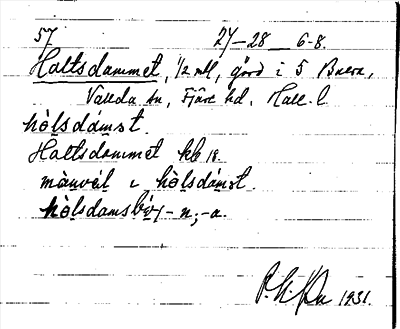 57 27-28 6-8.
Haltsdammet, 1/2 mtl, gård i 5 Backa,
Vallda sn, Fjäre hd. Hall. l.
hòlsdámst.
Haltsdammet kb 18
mànvél i hòlsdámst.
hòlsdamsbó, -n; -a.
1931.